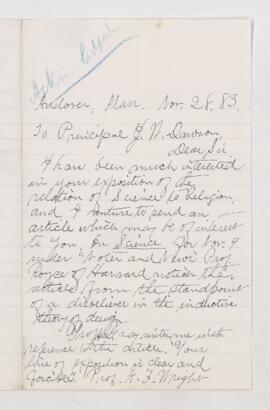 Acknowledged
Andover, Mass. Nov. 28, 83.
To Principal J. W. Dawson,
Dear Sir,
I have been much interested
in your exposition of the
relation of Science to Religion,
and I venture to send an
article which may be of interest
to you. In Science for Nov. 9
under "Notes and News" Prof
Royce of Harvard notices the
article from the standpoint
of a disbeliever in the inductive
theory of design.
Prof. Gray writes me with
reference to the article. "Your
line of exposition is clear and
forcible". Prof. G. F. Wright